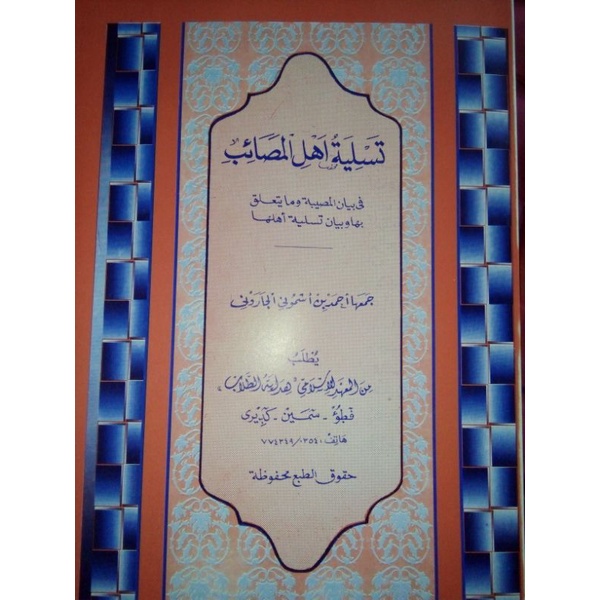 تسلية أهل المصائب
في بيان المصيبة وما يتعلق
بها وبيان تسلية أهلها
جمعها أحمد بن أسموني الجاروني
يُطلَبُ
من المعهد الإسلامي "هداية الطلاب"
فطوء - سمين - كديرى
هاتف: ٠٣٥٤/ ٧٧٤٣٤٩
حقوق الطبع محفوظة